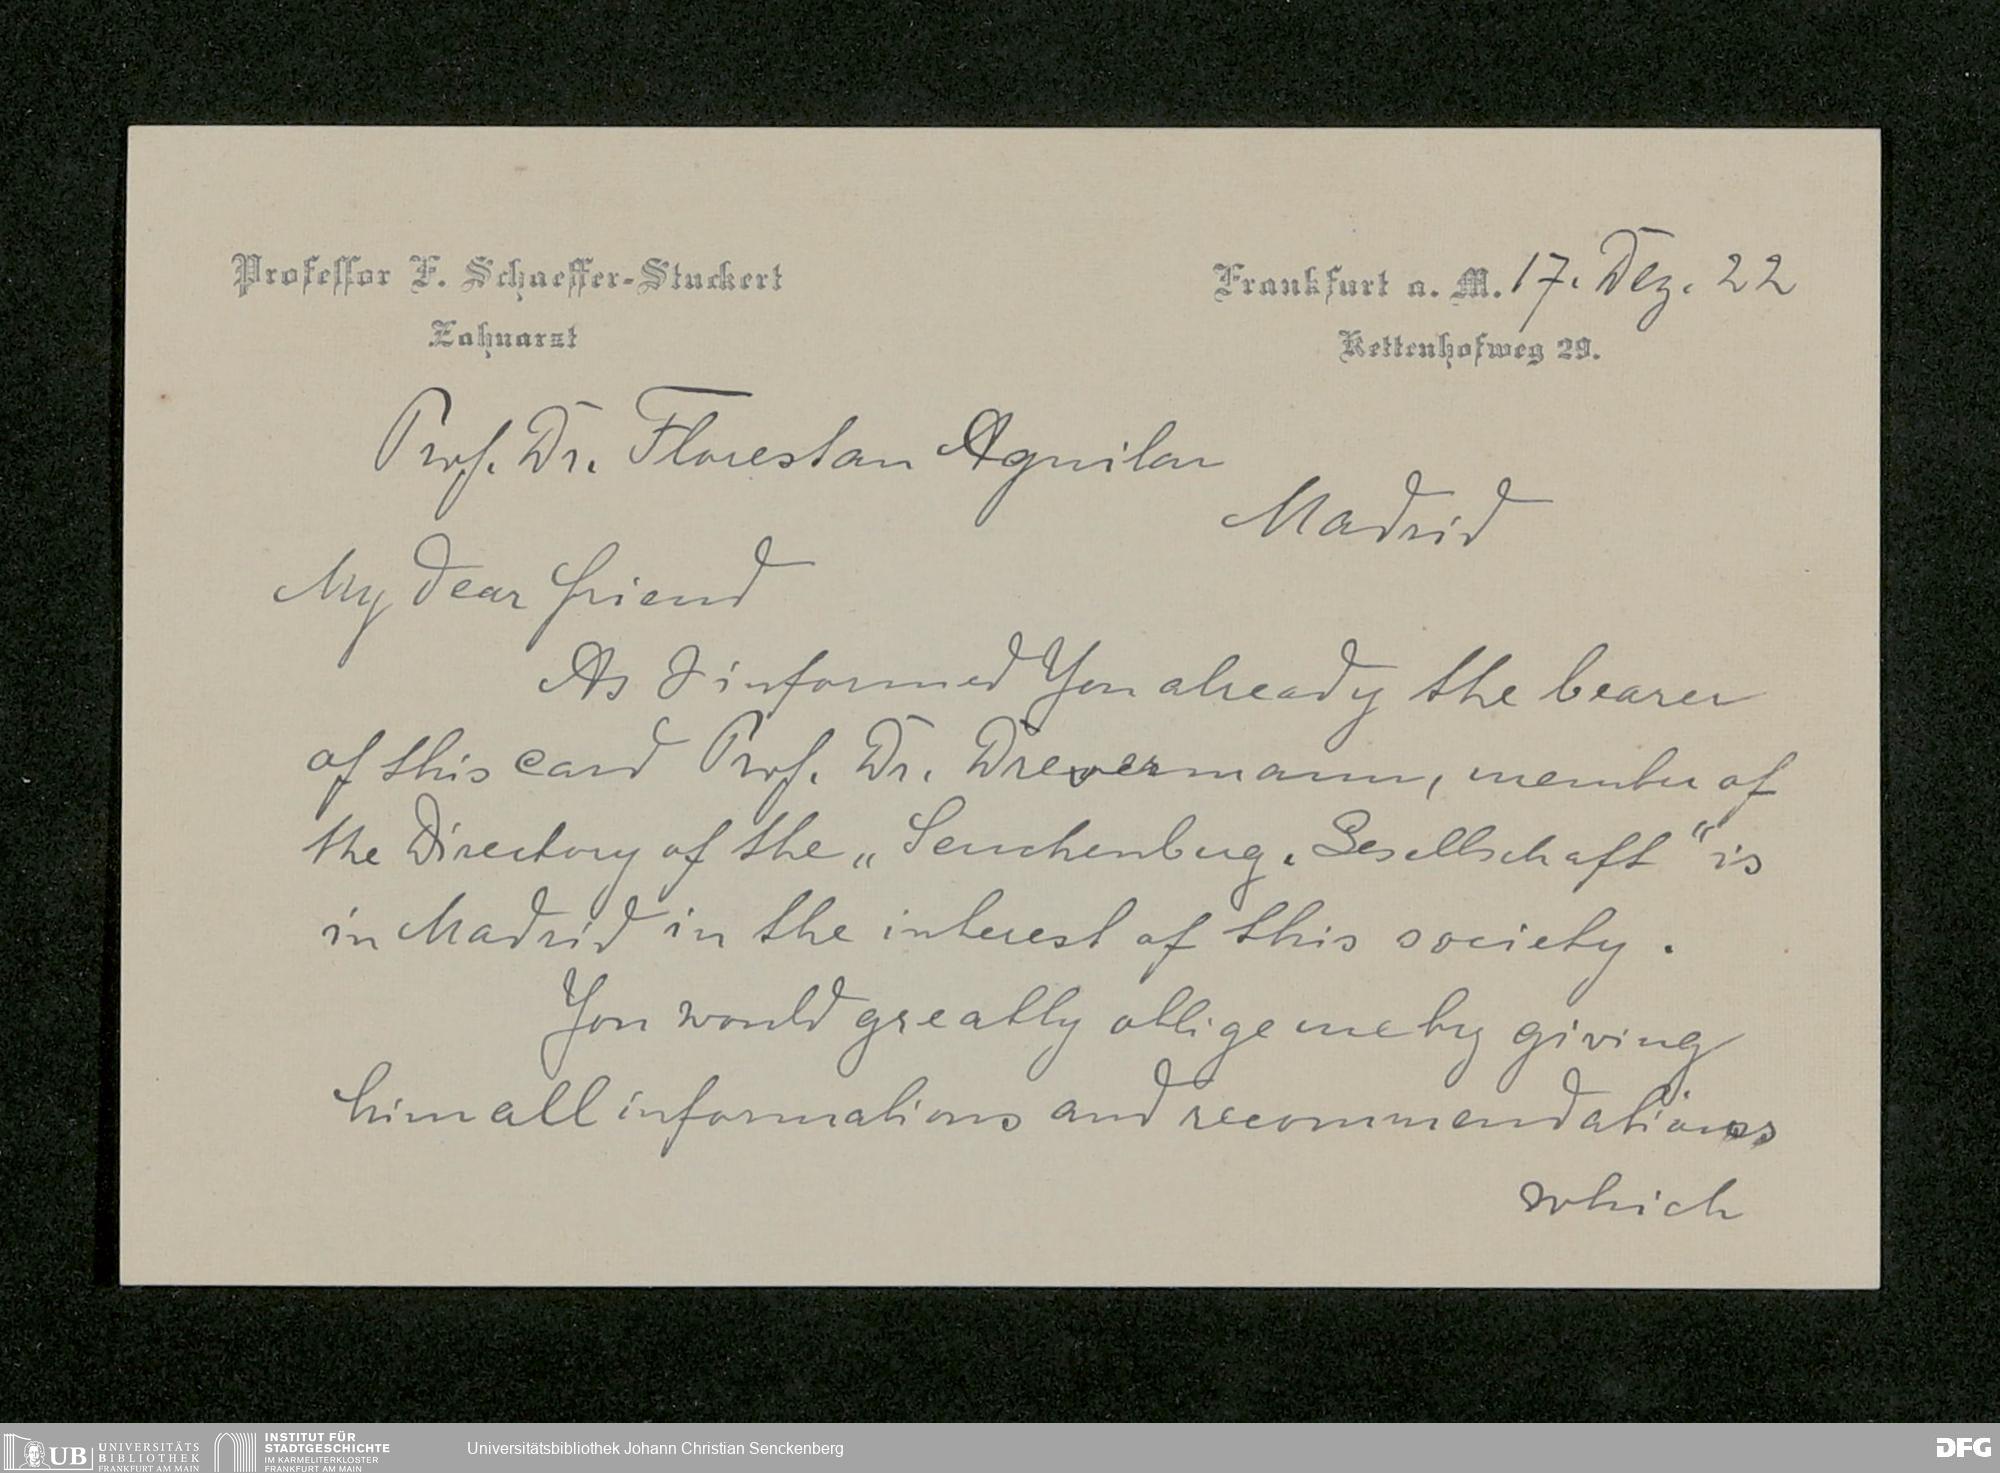 Professor F. Schaeffer-Stuckert
Zahnarzt
Frankfurt a. M. 17. Dez. 22
Kettenhofweg 29.
Prof. Dr. Florestan Aguilar
Madrid
My dear friend
As I informed You already the bearer
of this card Prof. Dr. Drevermann, member of
the Directory of the „Senckenberg. Gesellschaft“ is
in Madrid in the interest of this society.
You would greatly oblige me by giving
him all informations and recommendations
which
UB UNIVERSITÄTS
BIBLIOTHEK
FRANKFURT AM MAIN
INSTITUT FÜR
STADTGESCHICHTE
IM KARMELITERKLOSTER
FRANKFURT AM MAIN
Universitätsbibliothek Johann Christian Senckenberg
DFG